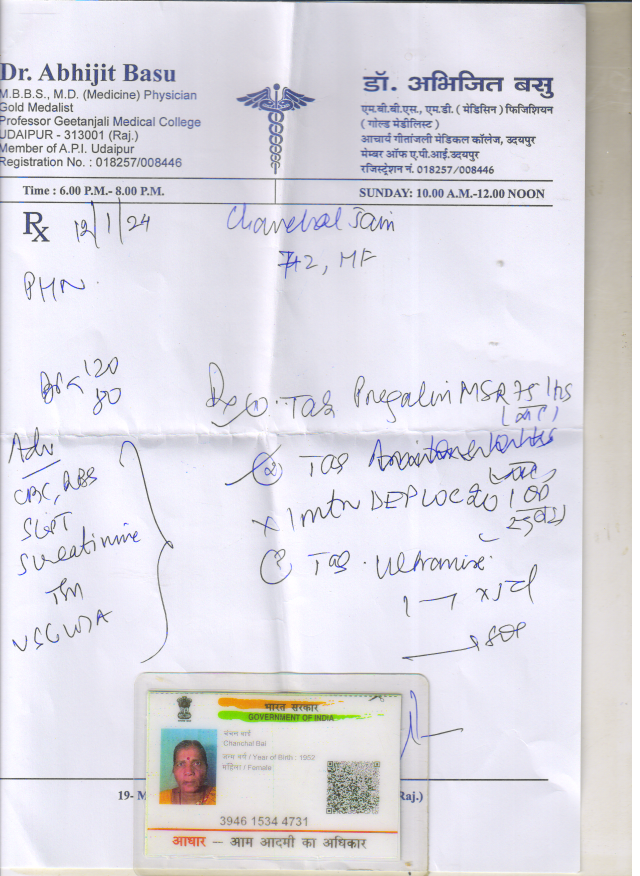 Dr. Abhijit Basu
M.B.B.S., M.D. (Medicine) Physician
Gold Medalist
Professor Geetanjali Medical College
UDAIPUR - 313001 (Raj.)
Member of A.P.I. Udaipur
Registration No. : 018257/008446
डॉ. अभिजित बसु
एम.बी.बी.एस., एम.डी. ( मेडिसिन ) फिजिशियन
( गोल्ड मेडीलिस्ट )
आचार्य गीतांजली मेडिकल कॉलेज, उदयपुर
मेम्बर ऑफ ए.पी.आई. उदयपुर
रजिस्ट्रेशन नं. 018257/008446
Time : 6.00 P.M.- 8.00 P.M.
SUNDAY: 10.00 A.M.-12.00 NOON
Rx 12/1/24 Chanchal Jain
PHN
120
80
Tab Pregalin MSR 75 1 hs
Adv
② Tab
CBC, RBS
SGPT
S creatinine
Tab
भारत सरकार
GOVERNMENT OF INDIA
Chanchal Bai
जन्म वर्ष / Year of Birth : 1952
महिला / Female
3946 1534 4731
आधार – आम आदमी का अधिकार
19- M
Raj.)